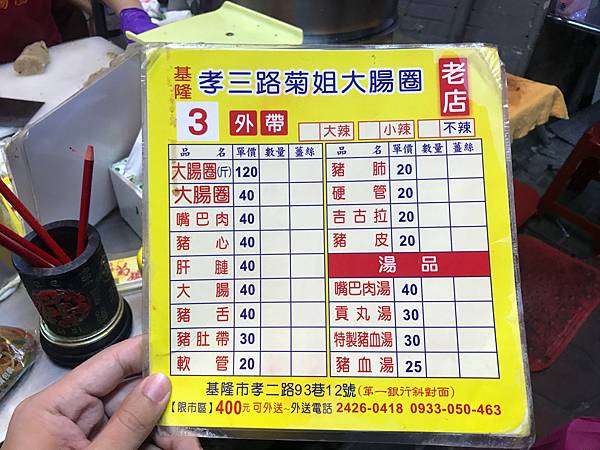 基隆 孝三路菊姐大腸圈 老店
3 外帶 大辣 小辣 不辣
品名 單價 數量 薑絲 品名 單價 數量 薑絲
大腸圈(斤) 120 豬肺 20
大腸圈 40 硬管 20
嘴巴肉 40 吉古拉 20
豬心 40 豬皮 20
肝腱 40 湯品
大腸 40 嘴巴肉湯 40
豬舌 40 貢丸湯 30
豬肚帶 30 特製豬血湯 30
軟管 20 豬血湯 25
基隆市孝二路93巷12號(第一銀行斜對面)
【限市區】400元可外送~外送電話 2426-0418 0933-050-463